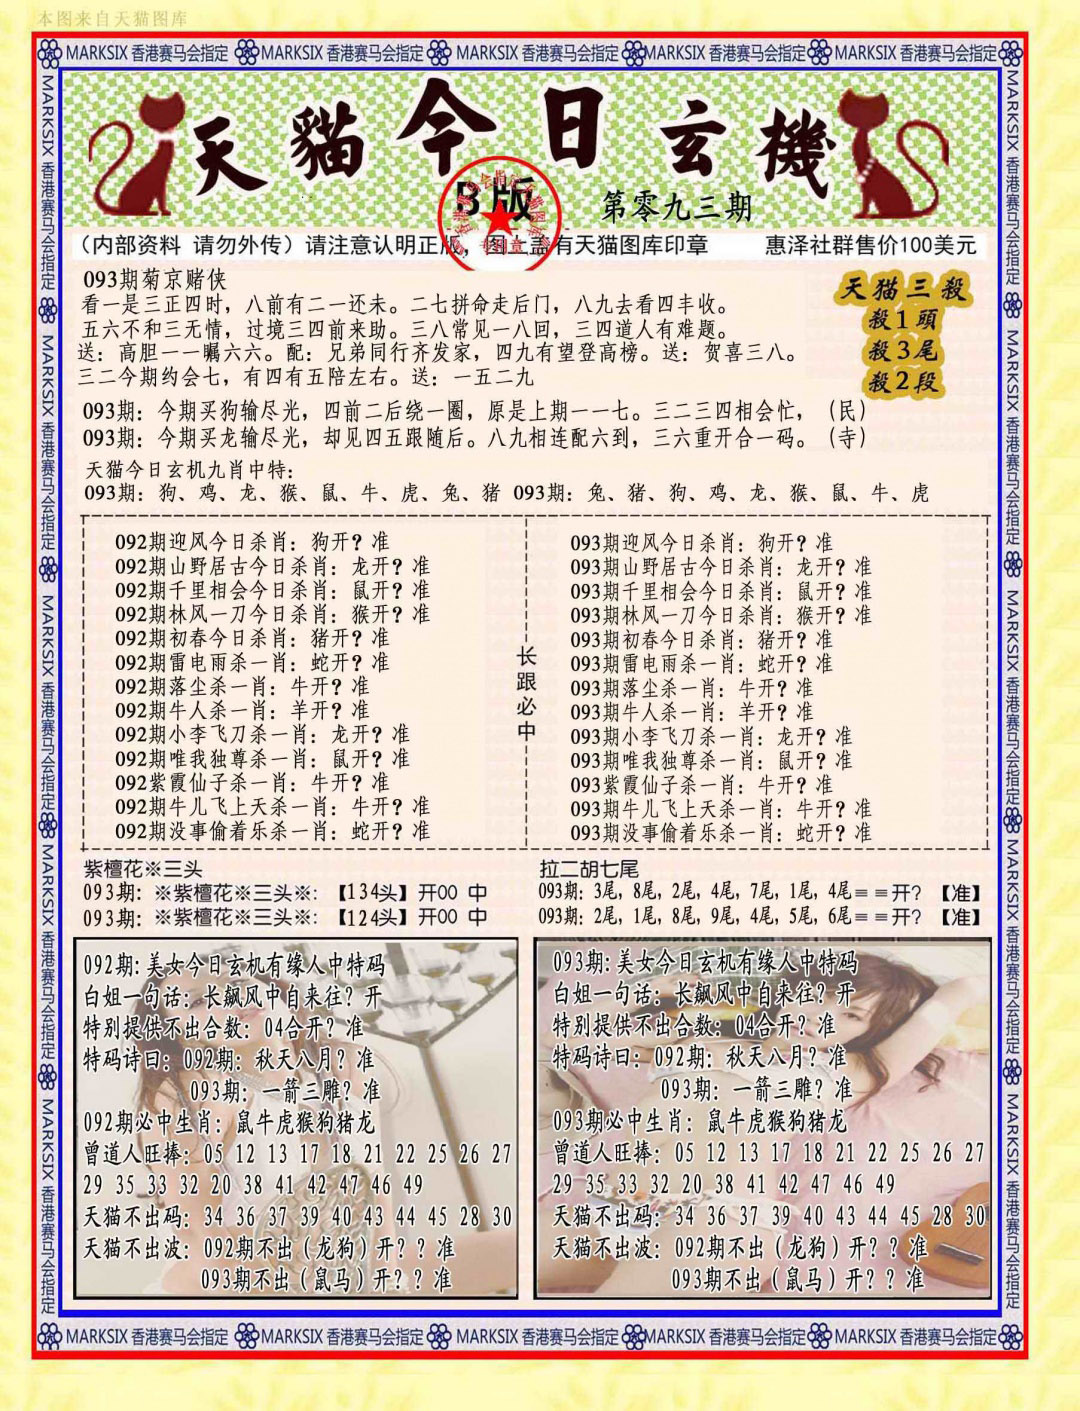 本图来自天猫图库
MARKSIX 香港赛马会指定 MARKSIX 香港赛马会指定 MARKSIX 香港赛马会指定 MARKSIX 香港赛马会指定 MARKSIX 香港赛马会指定
天貓今日玄機
B版
第零九三期
（内部资料 请勿外传）请注意认明正版，图上盖有天猫图库印章 惠泽社群售价100美元
093期菊京赌侠
看一是三正四时，八前有二一还未。二七拼命走后门，八九去看四丰收。
五六不和三无情，过境三四前来助。三八常见一八回，三四道人有难题。
送：高胆一一嘱六六。配：兄弟同行齐发家，四九有望登高榜。送：贺喜三八。
三二今期约会七，有四有五陪左右。送：一五二九
天猫三殺
殺1頭
殺3尾
殺2段
093期：今期买狗输尽光，四前二后绕一圈，原是上期一一七。三二三四相会忙，（民）
093期：今期买龙输尽光，却见四五跟随后。八九相连配六到，三六重开合一码。（寺）
天猫今日玄机九肖中特：
093期：狗、鸡、龙、猴、鼠、牛、虎、兔、猪 093期：兔、猪、狗、鸡、龙、猴、鼠、牛、虎
092期迎风今日杀肖：狗开？准
092期山野居古今日杀肖：龙开？准
092期千里相会今日杀肖：鼠开？准
092期林风一刀今日杀肖：猴开？准
092期初春今日杀肖：猪开？准
092期雷电雨杀一肖：蛇开？准
092期落尘杀一肖：牛开？准
092期牛人杀一肖：羊开？准
092期小李飞刀杀一肖：龙开？准
092期唯我独尊杀一肖：鼠开？准
092紫霞仙子杀一肖：牛开？准
092期牛儿飞上天杀一肖：牛开？准
092期没事偷着乐杀一肖：蛇开？准
长跟必中
093期迎风今日杀肖：狗开？准
093期山野居古今日杀肖：龙开？准
093期千里相会今日杀肖：鼠开？准
093期林风一刀今日杀肖：猴开？准
093期初春今日杀肖：猪开？准
093期雷电雨杀一肖：蛇开？准
093期落尘杀一肖：牛开？准
093期牛人杀一肖：羊开？准
093期小李飞刀杀一肖：龙开？准
093期唯我独尊杀一肖：鼠开？准
093紫霞仙子杀一肖：牛开？准
093期牛儿飞上天杀一肖：牛开？准
093期没事偷着乐杀一肖：蛇开？准
紫檀花※三头
093期：※紫檀花※三头※：【134头】开00 中
093期：※紫檀花※三头※：【124头】开00 中
拉二胡七尾
093期：3尾，8尾，2尾，4尾，7尾，1尾，4尾＝＝开？【准】
093期：2尾，1尾，8尾，9尾，4尾，5尾，6尾＝＝开？【准】
092期:美女今日玄机有缘人中特码
白姐一句话：长飙风中自来往？开
特别提供不出合数：04合开？准
特码诗曰：092期：秋天八月？准
093期：一箭三雕？准
092期必中生肖：鼠牛虎猴狗猪龙
曾道人旺捧：05 12 13 17 18 21 22 25 26 27
29 35 33 32 20 38 41 42 47 46 49
天猫不出码：34 36 37 39 40 43 44 45 28 30
天猫不出波：092期不出（龙狗）开？？准
093期不出（鼠马）开？？准
093期:美女今日玄机有缘人中特码
白姐一句话：长飙风中自来往？开
特别提供不出合数：04合开？准
特码诗曰：092期：秋天八月？准
093期：一箭三雕？准
093期必中生肖：鼠牛虎猴狗猪龙
曾道人旺捧：05 12 13 17 18 21 22 25 26 27
29 35 33 32 20 38 41 42 47 46 49
天猫不出码：34 36 37 39 40 43 44 45 28 30
天猫不出波：092期不出（龙狗）开？？准
093期不出（鼠马）开？？准
MARKSIX 香港赛马会指定 MARKSIX 香港赛马会指定 MARKSIX 香港赛马会指定 MARKSIX 香港赛马会指定 MARKSIX 香港赛马会指定
MARKSIX 香港赛马会指定 MARKSIX 香港赛马会指定 MARKSIX 香港赛马会指定 MARKSIX 香港赛马会指定 MARKSIX 香港赛马会指定
MARKSIX 香港赛马会指定 MARKSIX 香港赛马会指定 MARKSIX 香港赛马会指定 MARKSIX 香港赛马会指定 MARKSIX 香港赛马会指定